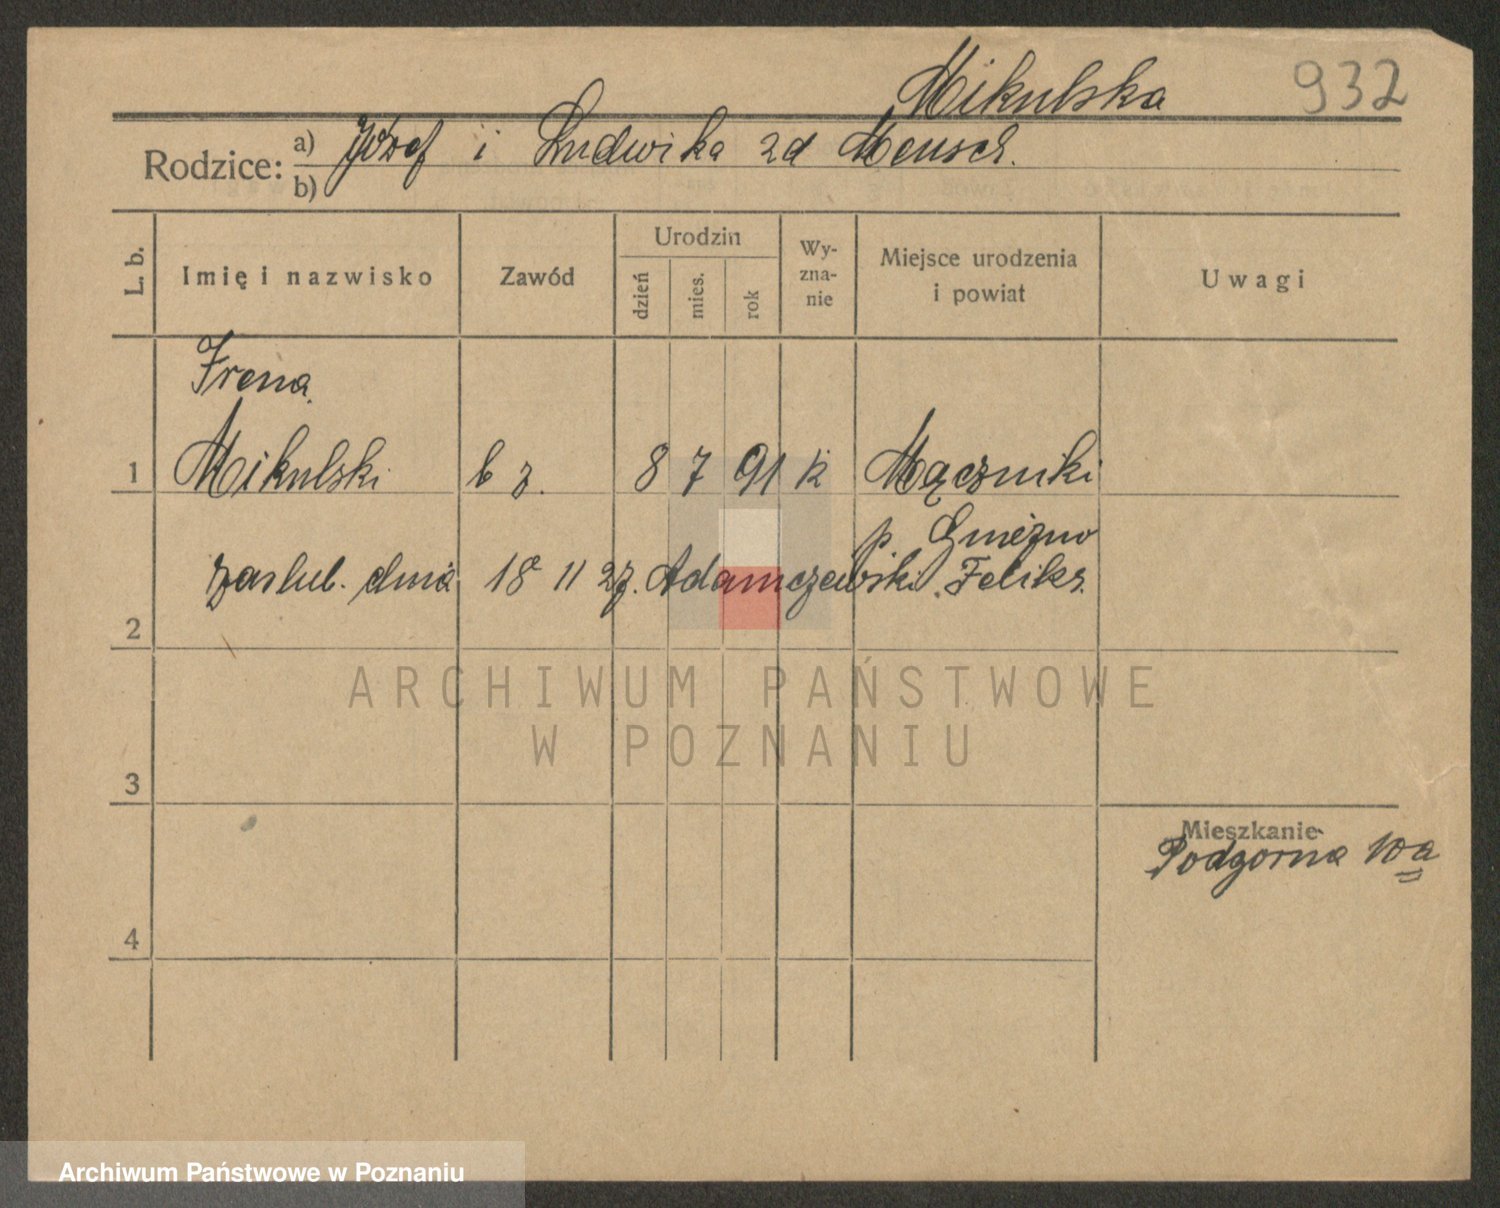 Mikulska 932
Rodzice: a) Józef i Ludwika zd Mensch.
b)
L. b. Imię i nazwisko Zawód Urodzin dzień mies. rok Wy-zna-nie Miejsce urodzenia i powiat Uwagi
Irena
1 Mikulski b z. 8 7 91 k Mączniki
p. Gniezno
zaslub. dnia 18 11 27. Adamczewski Feliks.
2
ARCHIWUM PAŃSTWOWE
W POZNANIU
3
Mieszkanie
Podgorna 10a
4
Archiwum Państwowe w Poznaniu